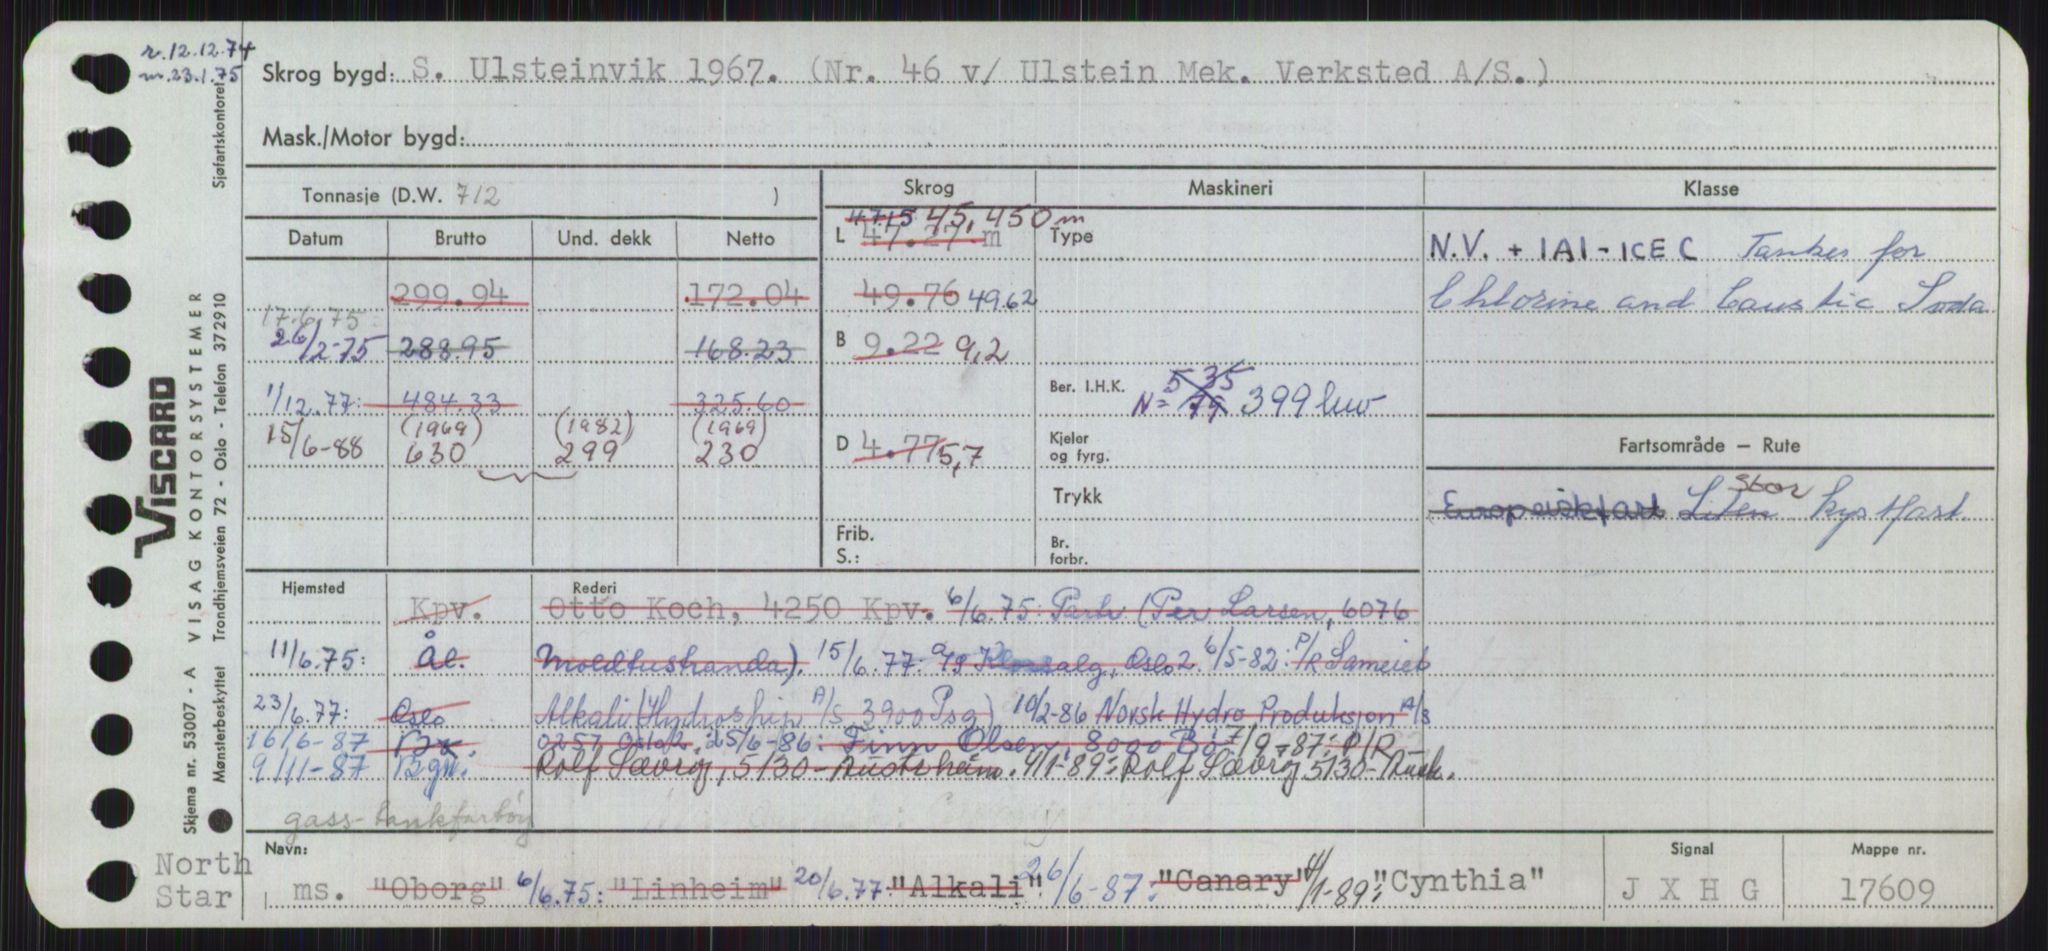 r. 12.12.74
m. 23.1.75
Skrog bygd: S. Ulsteinvik 1967. (Nr. 46 v/ Ulstein Mek. Verksted A/S.)
Mask./Motor bygd:
Tonnasje (D.W. 712 )
Skrog Maskineri Klasse
Datum Brutto Und. dekk Netto
L 47.27 m 4715 45,450 m
Type
N.V. + 1A1 - ICE C Tankes for
Chlorine and Caustic Soda
299.94 172.04 49.76 49.62
17.6.75
26/2-75 288.95 168.23 B 9.22 9,2
1/12.77: 484.33 325.60
Ber. I.H.K. N= 5 35 79 399 
(1969) (1982) (1969)
15/6-88 630 299 230 D 4.77 5,7
Kjeler og fyrg.
Fartsområde – Rute
Trykk
Europeiskfart Liten Stor kystfart.
Frib. S.:
Br. forbr.
Hjemsted Rederi
Kpv. Otto Koch, 4250 Kpv. 6/6.75: Partr (Per Larsen, 6076
11/6.75: Ål. Moldtustranda). 15/6.77: A/S Oslo 2. 6/5-82: P/R Sameiet
23/6.77: Oslo Alkali (Hydroship A/S 3900 Psg) 10/2-86 Norsk Hydro Produksjon A/S
16/6-87 Bø: 0257 Oslo 2, 25/6-86: Finn Olsen, 8000 Bø 7/9-87: P/R
9/11-87 Bgn: Rolf Sævrøy, 5130 - Austrheim. 4/1-89: Rolf Sævrøy 5130-Aush.
gass-tankfartøy
Navn: Signal Mappe nr.
North
Star
ms. "Oborg" 6/6.75: "Linheim" 20/6.77: "Alkali" 26/6-87: "Canary" 4/1-89: "Cynthia" J X H G 17609
Skjema nr. 53007 - A VISAG KONTORSYSTEMER
VISCARD
Mønsterbeskyttet Trondhjemsveien 72 - Oslo - Telefon 372910 Sjøfartskontoret